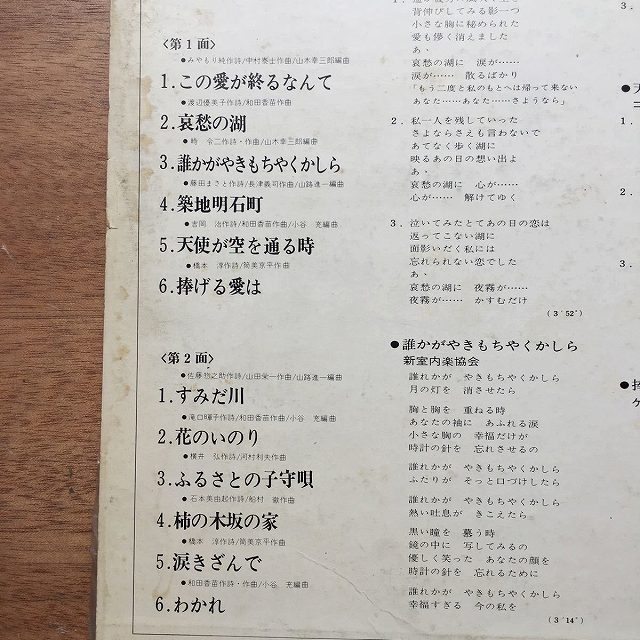 〈第1面〉
●みやもり純作詩/中村泰士作曲/山木幸三郎編曲
1.この愛が終るなんて
●渡辺優美子作詩/和田香苗作曲
2.哀愁の湖
令二作詩・作曲/山木幸三郎編曲
3.誰かがやきもちやくかしら
●藤田まさと作詩/長津義司作曲/山路進一編曲
4.築地明石町
●吉岡 治作詩/和田香苗作曲/小谷 充編曲
5.天使が空を通る時
●橋本 淳作詩/筒美京平作曲
6.捧げる愛は
〈第2面〉
●佐藤惣之助作詩/山田栄一作曲/山路進一編曲
1.すみだ川
●滝口暉子作詩/和田香苗作曲/小谷 充編曲
2.花のいのり
●横井 弘作詩/河村利夫作曲
3.ふるさとの子守唄
●石本美由起作詩/船村 徹作曲
4.柿の木坂の家
●橋本 淳作詩/筒美京平作曲
5.涙きざんで
●和田香苗作詩・作曲/小谷 充編曲
6.わかれ
背伸びしてみる影一つ
小さな胸に秘められた
愛も儚く消えました
あゝ
哀愁の湖に 涙が……
涙が…… 散るばかり
「もう二度と私のもとへは帰って来ない
あなた……あなた……さようなら」
2. 私一人を残していった
さよならさえも言わないで
あてなく歩く湖に
映るあの日の想い出よ
あゝ
哀愁の湖に 心が……
心が…… 解けてゆく
3. 泣いてみたとてあの日の恋は
返ってこない湖に
面影いだく私には
忘れられない恋でした
あゝ
哀愁の湖に 夜霧が……
夜霧が…… かすむだけ
(3′52″)
●誰かがやきもちやくかしら
新室内楽協会
誰れかが やきもちやくかしら
月の灯を 消させたら
胸と胸を 重ねる時
あなたの袖に あふれる涙
小さな胸の 幸福だけが
時計の針を 忘れさせるの
誰れかが やきもちやくかしら
ふたりが そっと口づけしたら
誰れかが やきもちやくかしら
熱い吐息が きこえたら
黒い瞳を 慕う時
鏡の中に 写してみるの
優しく笑った あなたの顔を
時計の針を 忘れるために
誰れかが やきもちやくかしら
幸福すぎる 今の私を
(3′14″)
3.
●天
1.
2.
3.